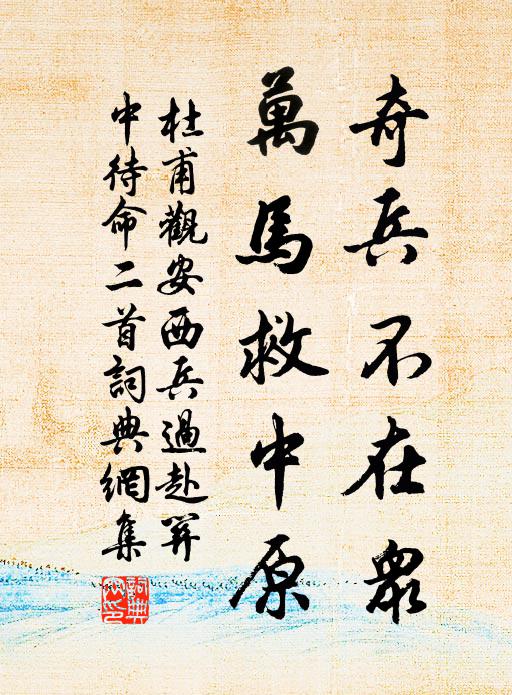 奇兵不在眾
萬馬救中原
杜甫觀安西兵過赴關
中待命二首詞典網集